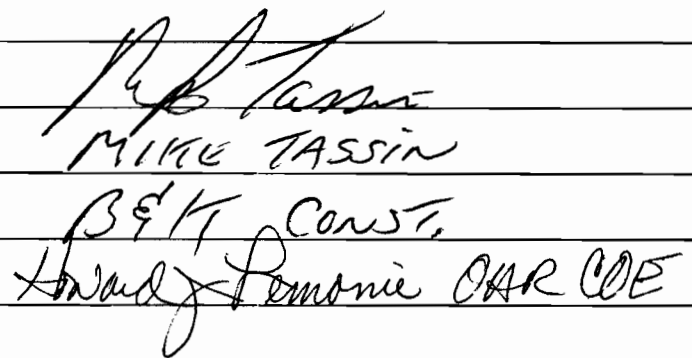 MB Tassin
MIKE TASSIN
B & K CONST.
Howard J Lemonie OAR COE